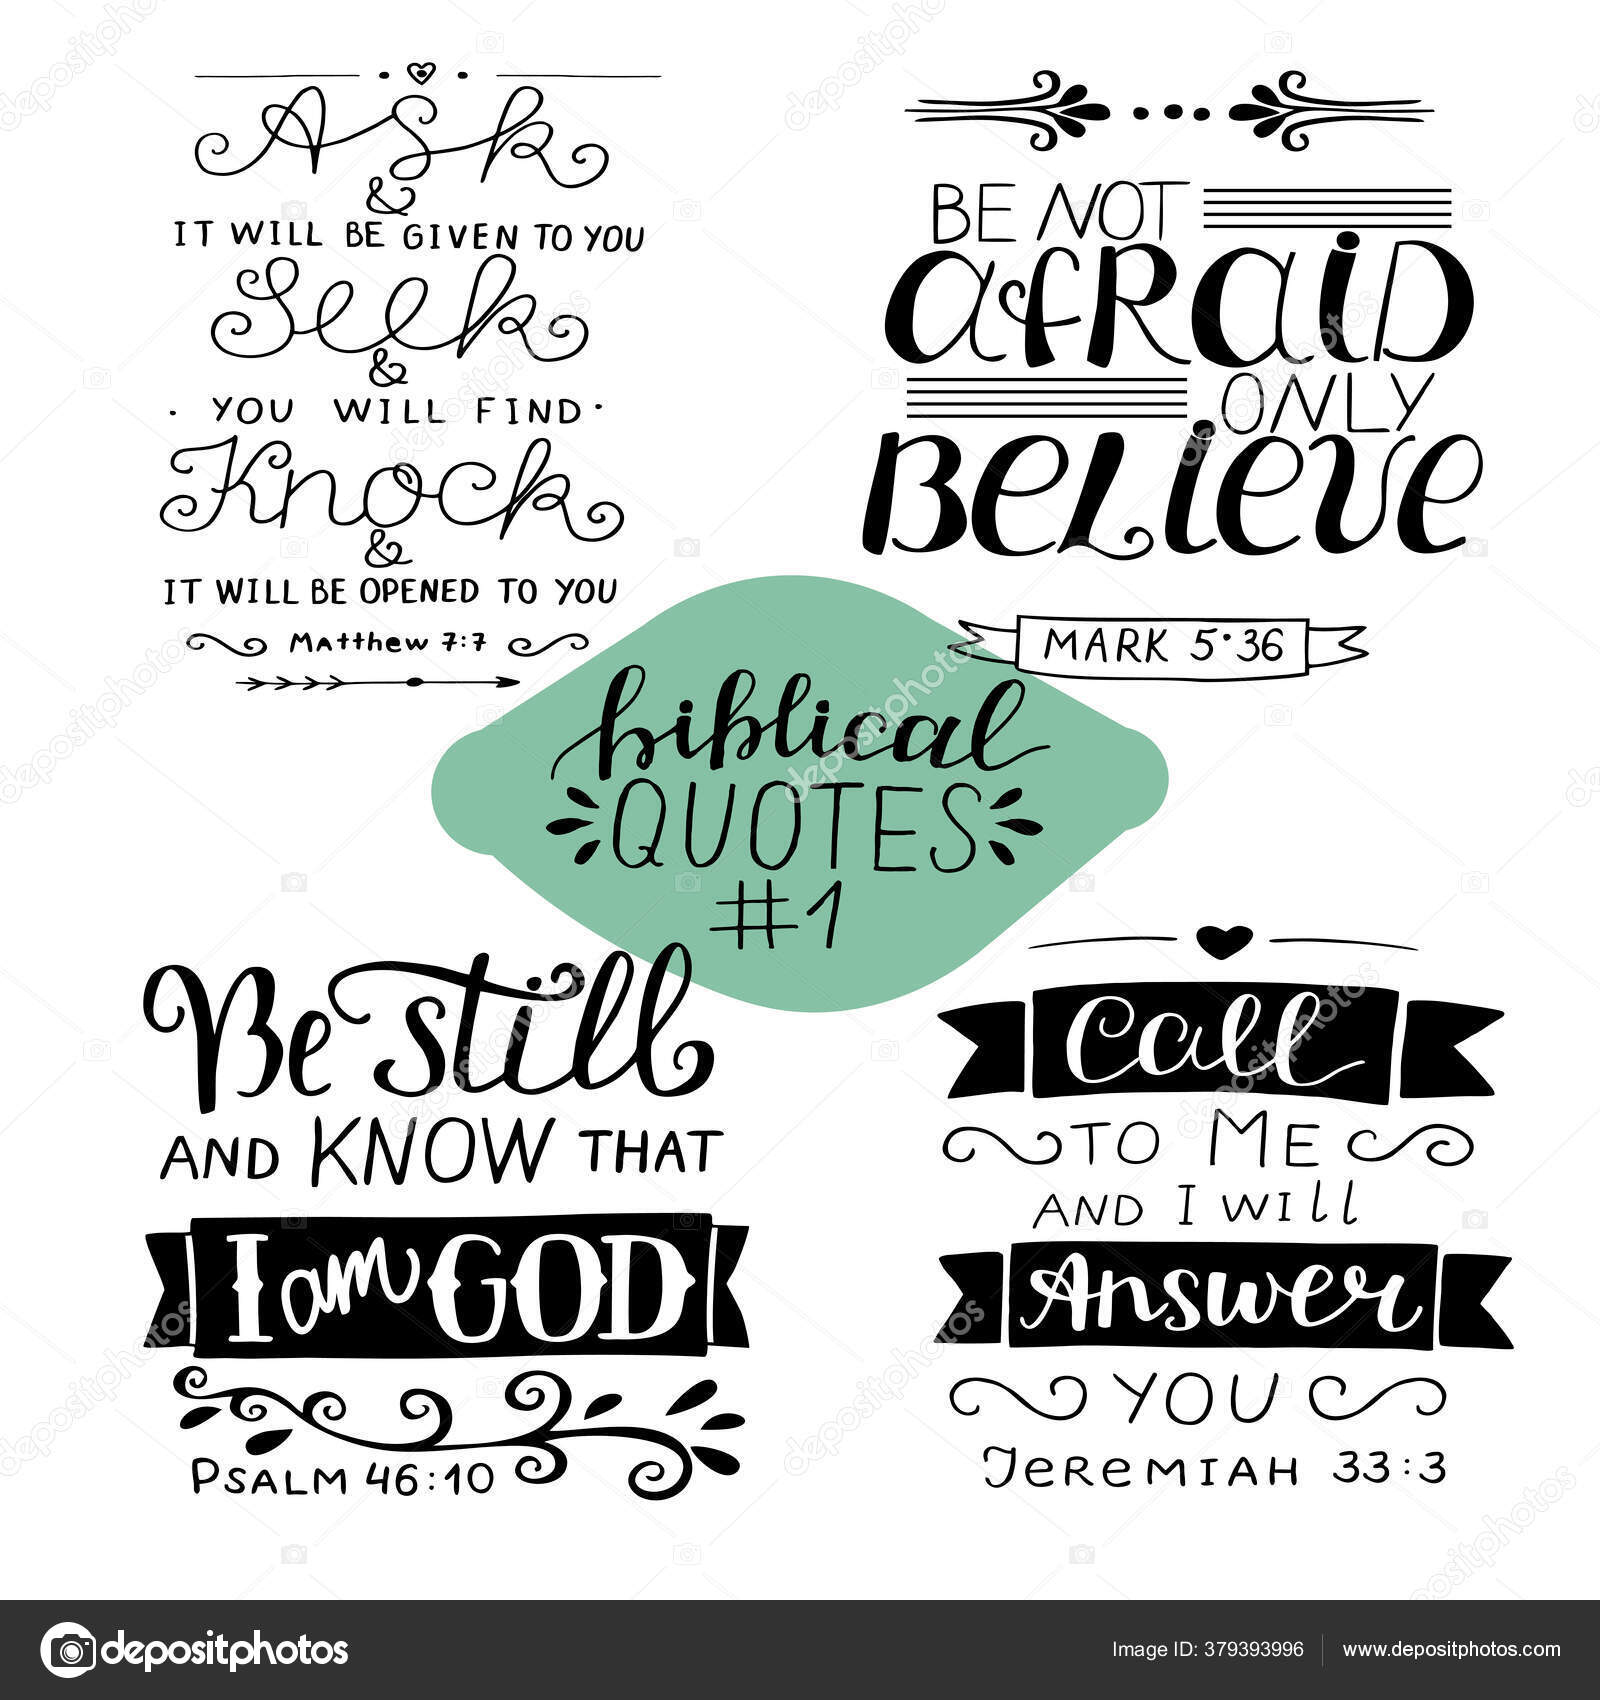 Ask
&
IT WILL BE GIVEN TO YOU
Seek
&
· YOU WILL FIND ·
Knock
&
IT WILL BE OPENED TO YOU
Matthew 7:7
BE NOT
AFRAID
ONLY
BELIEVE
MARK 5:36
biblical
QUOTES
#1
Be still
AND KNOW THAT
I am GOD
PSALM 46:10
Call
TO ME
AND I WILL
Answer
YOU
JEREMIAH 33:3
depositphotos
Image ID: 379393996
www.depositphotos.com